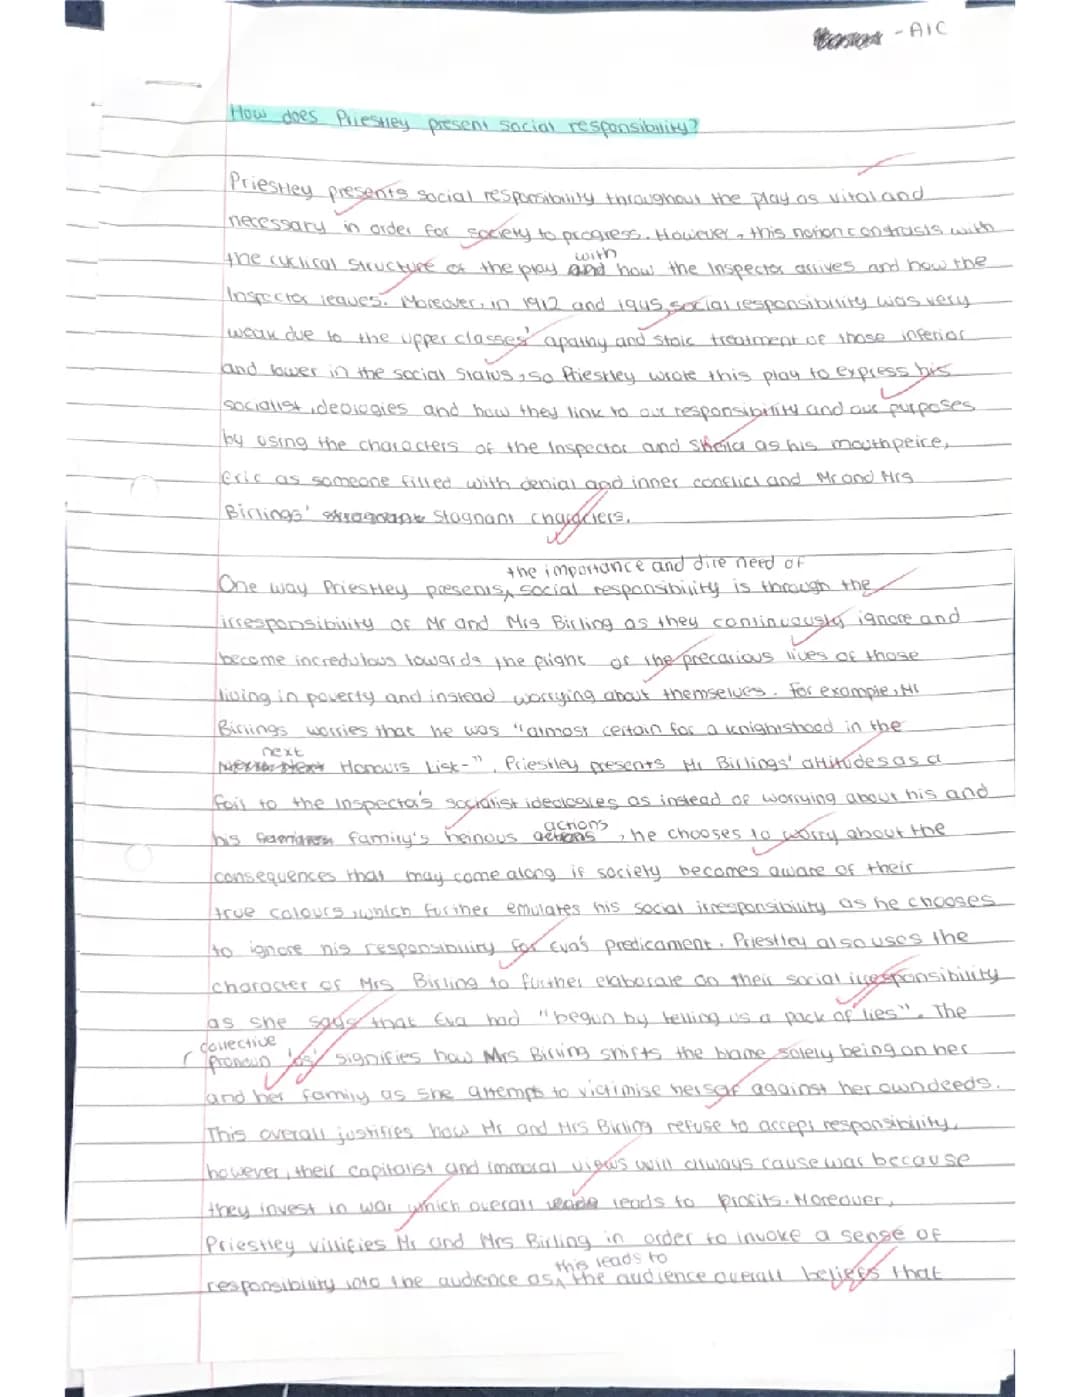 - AIC
How does Priestley present social responsibility?
Priestley presents social responsibility throughout the play as vital and
necessary in order for society to progress. However, this notion contrasts with
with
the cyclical structure of the play and how the Inspector arrives and how the
Inspector leaves. Moreover, in 1912 and 1945, social responsibility was very
weak due to the upper classes' apathy and stoic treatment of those inferior
and lower in the social status, so Priestley wrote this play to express his
socialist ideologies and how they link to our responsibility and our purposes
by using the characters of the Inspector and Sheila as his mouthpeice,
Eric as someone filled with denial and inner conflict and Mr and Mrs
Birlings' stagnant characters.
the importance and dire need of
One way Priestley presents social responsibility is through the
irresponsibility of Mr and Mrs Birling as they continuously ignore and
become incredulous towards the plight of the precarious lives of those
living in poverty and instead worrying about themselves. For example, Mr
Birlings worries that he was "almost certain for a knightshood in the
next
Honours List-". Priestley presents Mr Birlings' attitudes as a
foil to the Inspector's socialist ideologies as instead of worrying about his and
actions
his family's heinous actions, he chooses to worry about the
consequences that may come along if society becomes aware of their
true colours, which further emulates his social irresponsibility as he chooses
to ignore his responsibility for Eva's predicament. Priestley also uses the
character of Mrs Birling to further elaborate on their social irresponsibility
as she says that Eva had "begun by telling us a pack of lies". The
collective
pronoun 'us' signifies how Mrs Birling shifts the blame solely being on her
and her family as she attempts to victimise herself against her own deeds.
This overall justifies how Mr and Mrs Birling refuse to accept responsibility,
however, their capitalist and immoral views will always cause war because
they invest in war which overall leads to profits. Moreover,
Priestley villifies Mr and Mrs Birling in order to invoke a sense of
this leads to
responsibility into the audience as the audience overall beliefs that